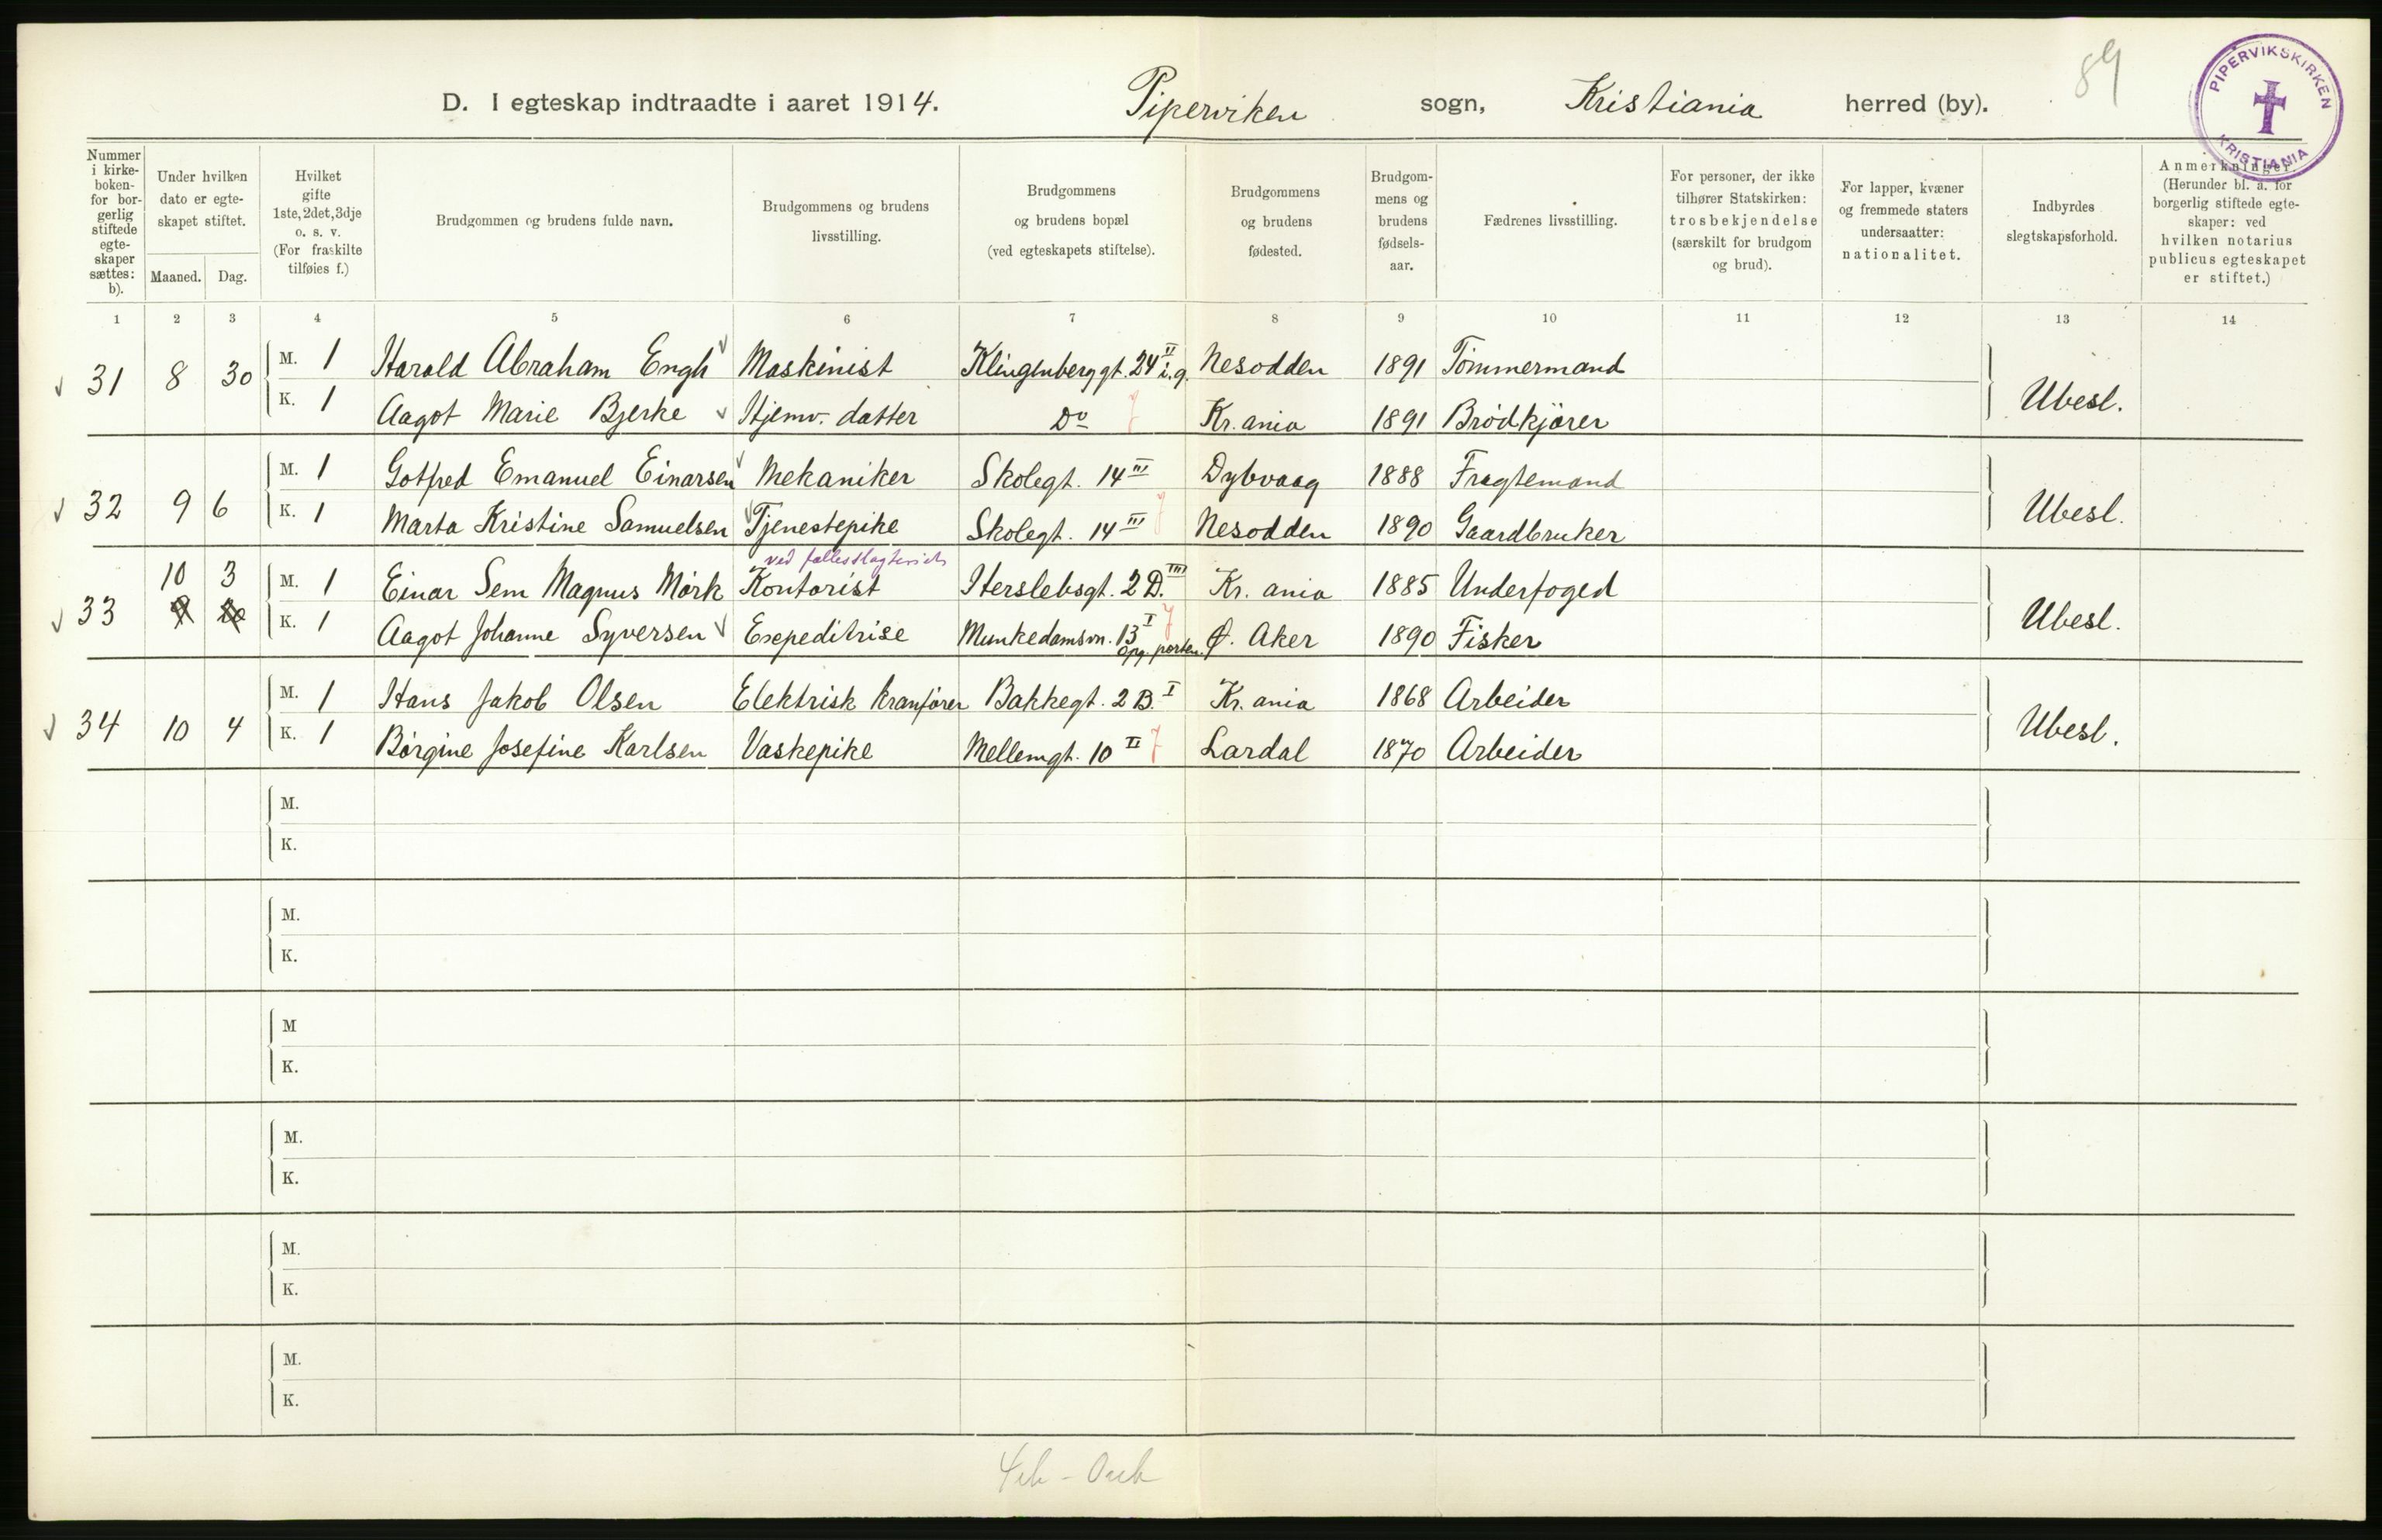 D. I egteskap indtraadte i aaret 1914. Piperviken sogn, Kristiania herred (by). 89
PIPERVIKSKIRKEN KRISTIANIA
Nummer i kirke-boken- for bor-gerlig stiftede egte-skaper sættes: b).
Under hvilken dato er egte-skapet stiftet.
Maaned. Dag.
Hvilket gifte 1ste, 2det, 3dje o. s. v. (For fraskilte tilføies f.)
Brudgommen og brudens fulde navn.
Brudgommens og brudens livsstilling.
Brudgommens og brudens bopæl (ved egteskapets stiftelse).
Brudgommens og brudens fødested.
Brudgom-mens og brudens fødsels-aar.
Fædrenes livsstilling.
For personer, der ikke tilhører Statskirken: trosbekjendelse (særskilt for brudgom og brud).
For lapper, kvæner og fremmede staters undersaatter: nationalitet.
Indbyrdes slegtskapsforhold.
Anmerkninger. (Herunder bl. a. for borgerlig stiftede egte-skaper: ved hvilken notarius publicus egteskapet er stiftet.)
1 2 3 4 5 6 7 8 9 10 11 12 13 14
31 8 30 M. 1 Harald Abraham Engh Maskinist Klingenberggt. 24 II i.g. Nesodden 1891 Tømmermand Ubesl.
K. 1 Aagot Marie Bjerke Hjemv. datter Do Kr.ania 1891 Brødkjører
32 9 6 M. 1 Gotfred Emanuel Einarsen Mekaniker Skolegt. 14 III Dybvaag 1888 Fragtemand Ubesl.
K. 1 Marta Kristine Samuelsen Tjenestepike Skolegt. 14 III Nesodden 1890 Gaardbruker
ved fællesslagteriet
33 10 3 M. 1 Einar Sem Magnus Mørk Kontorist Herslebsgt. 2 D. III Kr. ania 1885 Underfoged Ubesl.
K. 1 Aagot Johanne Syversen Expeditrise Munkedamsvn. 13 I opg. porten. Ø. Aker 1890 Fisker
34 10 4 M. 1 Hans Jakob Olsen Elektrisk kranfører Bakkegt. 2 B. I Kr. ania 1868 Arbeider Ubesl.
K. 1 Børgine Josefine Karlsen Vaskepike Mellemgt. 10 II Lardal 1870 Arbeider
M.
K.
M.
K.
M
K.
M.
K.
M.
K.
M.
K.